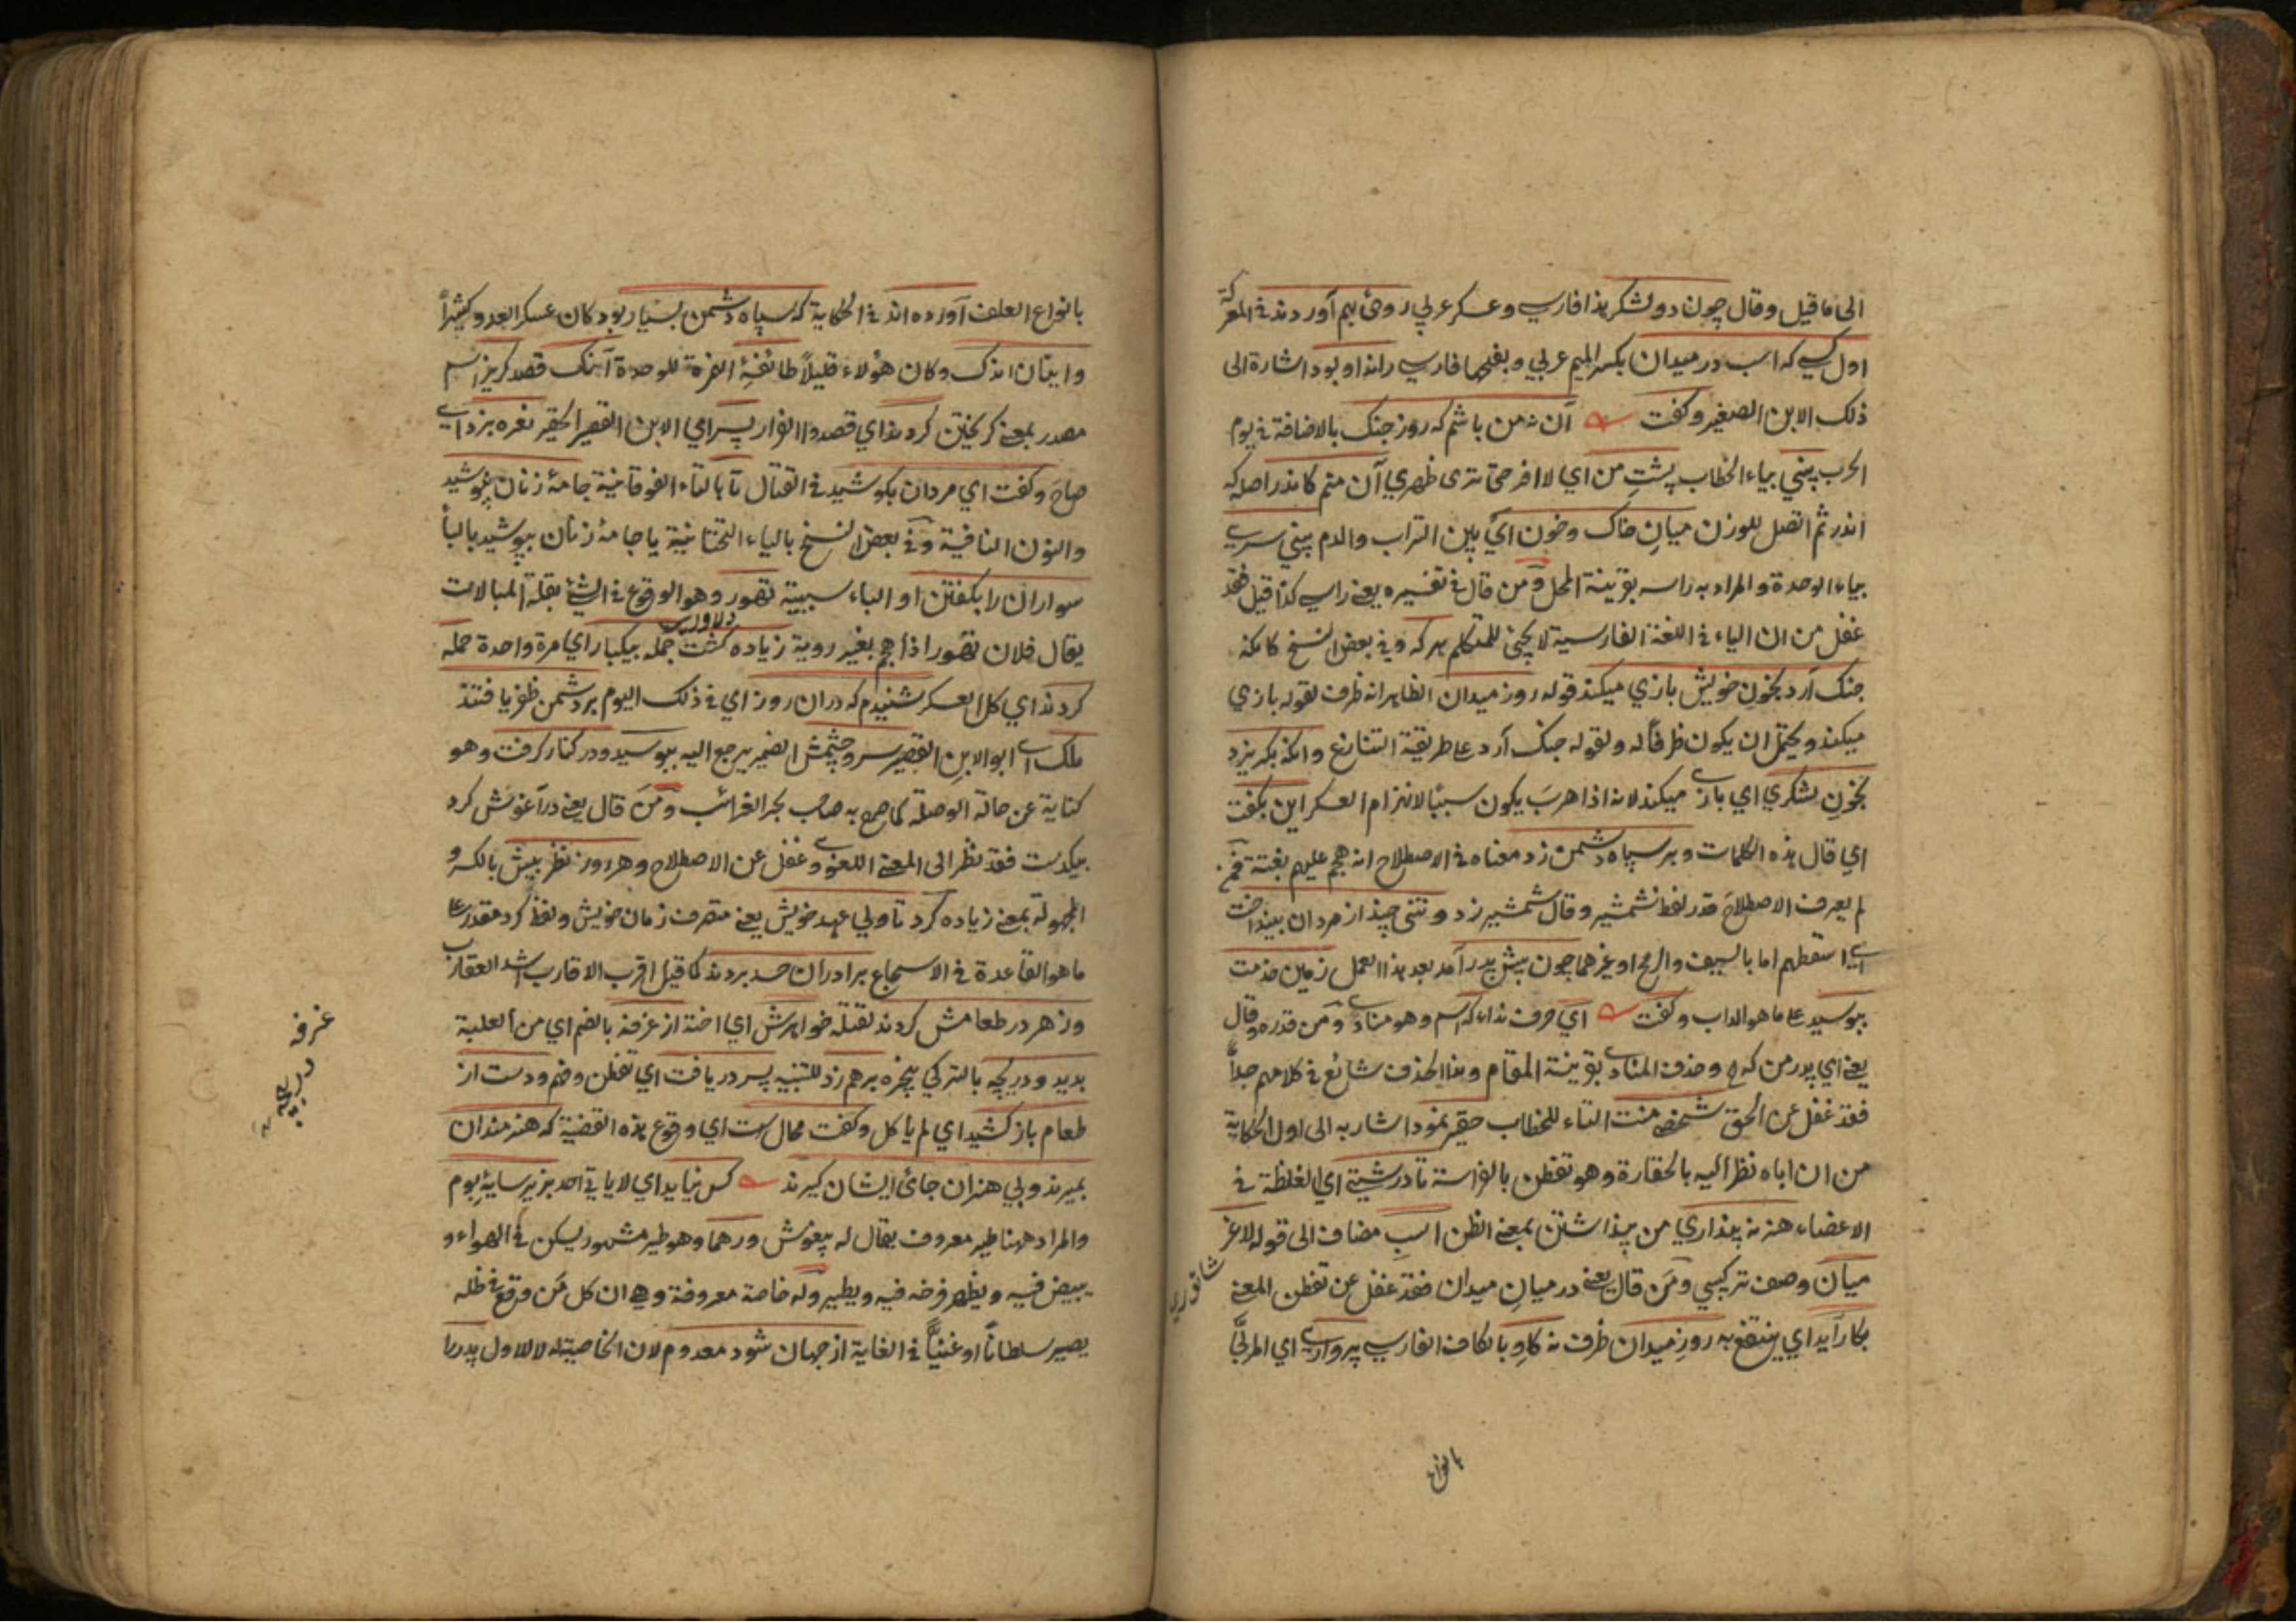 الى ما قيل وقال چون دو لشكر هذا فارسي وعسكر عربي روى بهم آوردند في المعركة
اول كسي كه اسب در ميدان بكسر الميم عربي وبفتحها فارسي راند او بود اشارة الى
ذلك الابن الصغير وكفت آن نه من باشم كه روز جنك بالاضافة في يوم
الحرب بيني بياء الخطاب پشت من اي لا افر حتى ترى ظهري آن منم كاندر اصله كه
اندر ثم اتصل للوزن ميان خاك وخون اي بين التراب والدم بيني سري
بياء الوحدة والمراد به راسه بقرينة المحل ومن قال في تفسيره يعني راسي كذا قيل فقد
غفل من ان الياء في اللغة الفارسية لا يجئ للمتكلم هر كه وفي بعض النسخ كانكه
جنك آرد بخون خويش بازي ميكند قوله روز ميدان الظاهر انه ظرف لقوله بازي
ميكند ويحتمل ان يكون ظرفا له ولقوله جنك آرد على طريقة التنازع وانكه بكريزد
بخون لشكري اي بازي ميكند لانه اذا هرب يكون سببا لانهزام العسكر اين بكفت
اي قال هذه الكلمات وبر سپاه دشمن زد معناه في الاصطلاح انه هجم عليهم بغتة فمن
لم يعرف الاصطلاح قدر لفظ شمشير وقال شمشير زد وتني چند از مردان بينداخت
اي اسقطهم اما بالسيف والرمح او غيرهما چون پيش پدر آمد بعد هذا العمل زمين خدمت
ببوسيد على ما هو الداب وكفت اي حرف نداء كه اسم وهو منادى ومن قدره وقال
يعني اي پدر من كه وحذف المنادى بقرينة المقام وهذا الحذف شائع في كلامهم جدا
فقد غفل عن الحق شخص منت التاء للخطاب حقير نمود اشار به الى اول الحكاية
من ان اباه نظر اليه بالحقارة وهو تفطن بالفراسة تا درشتي اي الغلظة في
الاعضاء هنر نه پنداري من پنداشتن بمعنى الظن اسب مضاف الى قوله لاغر
ميان وصف تركيبي ومن قال يعني در ميان ميدان فقد غفل عن تفطن المعنى
بكار آيد اي ينتفع به روز ميدان ظرف نه كاو بالكاف الفارسي پرواري اي المربى
بانواع
بانواع العلف آورده اند في الحكاية كه سپاه دشمن بسيار بود كان عسكر العدو كثيرا
وايشان اندك وكان هؤلاء قليلا طائفة الهمزة للوحدة آهنك قصد كريز اسم
مصدر بمعنى كريختن كردند اي قصدوا الفرار پسر اي الابن القصير الحقير نعره بزد اي
صاح وكفت اي مردان بكوشيد في القتال تا بالتاء الفوقانية جامه زنان نپوشيد
والنون النافية وفي بعض النسخ بالياء التحتانية يا جامه زنان بپوشيد بالباء
سواران را بكفتن او الباء سببية تهور وهو الوقوع في الشئ بقلة المبالات
دلاوري
يقال فلان تهور اذا هجم بغير روية زياده كشت جمله بيكبار اي مرة واحدة حمله
كردند اي كل العسكر شنيدم كه دران روز اي في ذلك اليوم بر دشمن ظفر يافتند
ملك اي ابو الابن القصير سر وچشمش الضمير يرجع اليه ببوسيد ودر كنار كرفت وهو
كناية عن حالة الوصلة كما صرح به صاحب بحر الغرائب ومن قال يعني در آغوش كرد
بيكدست فقد نظر الى المعنى اللغوي وغفل عن الاصطلاح وهر روز نظر بيش بالكسرة
المجهولة بمعنى زياده كرد تا ولي عهد خويش يعني متصرف زمان خويش ولفظ كرد مقدر على
ما هو القاعدة في الاسجاع برادران حسد بردند كما قيل اقرب الاقارب اشد العقارب
وزهر در طعامش كردند لقتله خواهرش اي اخته از غرفه بالضم اي من العلية
بديد ودريچه بالتركي پنجره برهم زد للتنبيه پسر دريافت اي تفطن وفهم ودست از
طعام باز كشيد اي لم ياكل وكفت محال است اي وقوع هذه القضية كه هنرمندان
بميرند وبي هنران جاي ايشان كيرند كس نيايد اي لا ياتي احد بزير سايه بوم
والمراد ههنا طير معروف يقال له بيغوش ور هما وهو طير مشهور يسكن في الهواء و
يبيض فيه ويظهر فرخه فيه ويطير وله خاصة معروفة وهي ان كل من وقع في ظله
يصير سلطانا او غنيا في الغاية از جهان شود معدوم لان الخاصية له لا للاول پدر را
غرفه
دريچه